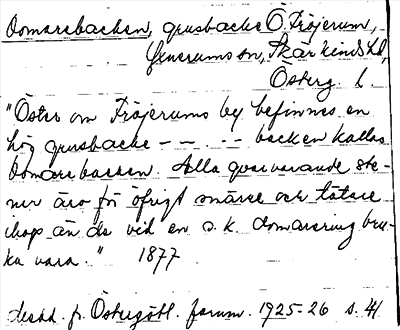 Domarebacken, grusbacke Ö. Fröjerum,
Gerums sn, Skärkinds hd,
Österg. l.
"Öster om Fröjerums by befinnes en
hög grusbacke – – . – – backen kallas
Domarebacken. Alla qvarvarande ste-
nar äro för öfrigt smärre och tätare
ihop än de vid en s.k. domarering bru-
ka vara." 1877
Medd. fr. Östergötl. fornm. 1925-26 s. 41